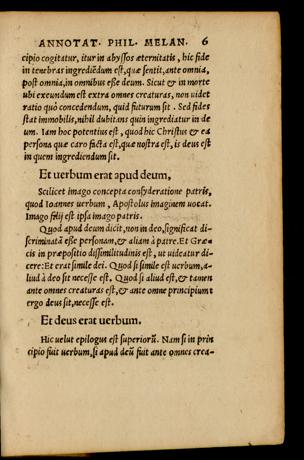 ANNOTAT. PHIL. MELAN. 6
cipio cogitatur, itur in abyssos æternitatis, hic fide
in tenebras ingrediẽdum est, quæ sentit, ante omnia,
post omnia, in omnibus esse deum. Sicut & in morte
ubi exeundum est extra omnes creaturas, non uidet
ratio quò concedendum, quid futurum sit. Sed fides
stat immobilis, nihil dubitans quin ingrediatur in de
um. Iam hoc potentius est, quod hic Christus & ea
persona quæ caro facta est, quæ nostra est, is deus est
in quem ingrediendum sit.
Et uerbum erat apud deum,
Scilicet imago concepta consyderatione patris,
quod Ioannes uerbum, Apostolus imaginem uocat.
Imago filij est ipsa imago patris.
Quod apud deum dicit, non in deo, significat di-
scriminatã esse personam, & aliam à patre. Et Græ-
cis in præpositio dissimilitudinis est, ut uideatur di-
cere: Et erat simile dei. Quod si simile est uerbum, a-
liud à deo sit necesse est. Quod si aliud est, & tamen
ante omnes creaturas est, & ante omne principium
ergo deus sit, necesse est.
Et deus erat uerbum.
Hic uelut epilogus est superiorũ. Nam si in prin
cipio fuit uerbum, si apud deũ fuit ante omnes crea-